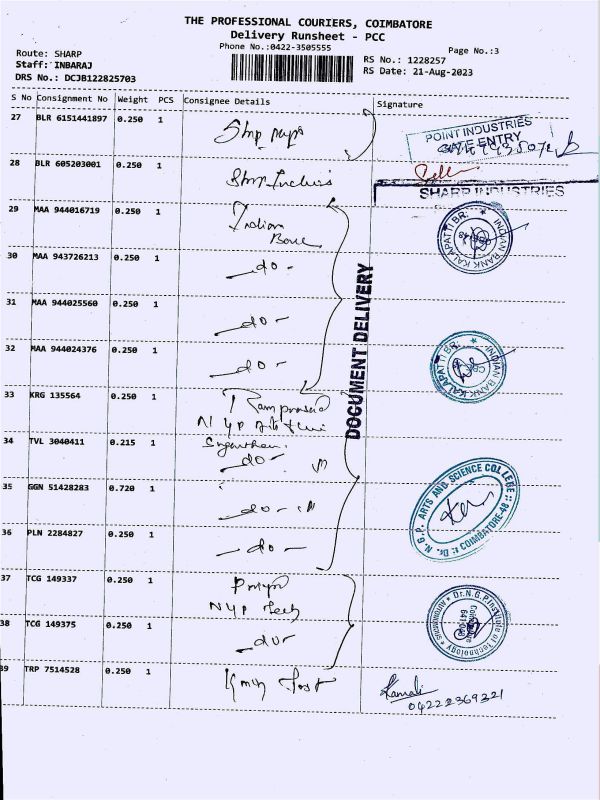 THE PROFESSIONAL COURIERS, COIMBATORE
Delivery Runsheet - PCC
Phone No.:0422-3505555
Page No.:3
Route: SHARP
Staff: INBARAJ
DRS No.: DCJB122825703
RS No.: 1228257
RS Date: 21-Aug-2023
S No Consignment No Weight PCS Consignee Details Signature
27 BLR 6151441897 0.250 1
POINT INDUSTRIES
GATE ENTRY
28 BLR 605203001 0.250 1
SHARP INDUSTRIES
29 MAA 944016719 0.250 1 Indian
Bank
INDIAN BANK KALAPATTI BR.
30 MAA 943726213 0.250 1 - do -
31 MAA 944025560 0.250 1 - do -
DOCUMENT DELIVERY
32 MAA 944024376 0.250 1 - do -
INDIAN BANK KALAPATTI BR.
33 KRG 135564 0.250 1 Ramprasad
34 TVL 3040411 0.215 1 - do -
35 GGN 51428283 0.720 1 - do -
Dr. N.G.P. ARTS AND SCIENCE COLLEGE
COIMBATORE-48
36 PLN 2284827 0.250 1 - do -
37 TCG 149337 0.250 1
NGP Tech
Dr.N.G.P.Institute of Technology
AUTONOMOUS
Coimbatore
38 TCG 149375 0.250 1 - do -
39 TRP 7514528 0.250 1
Kamali
04222369321